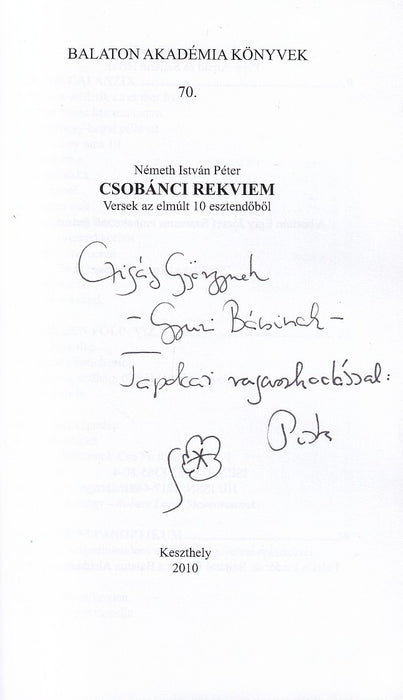 BALATON AKADÉMIA KÖNYVEK
70.
Németh István Péter
CSOBÁNCI REKVIEM
Versek az elmúlt 10 esztendőből
Györgynek
– Gyuri Bácsinak –
Tapolcai ragaszkodással:
Pista
Keszthely
2010